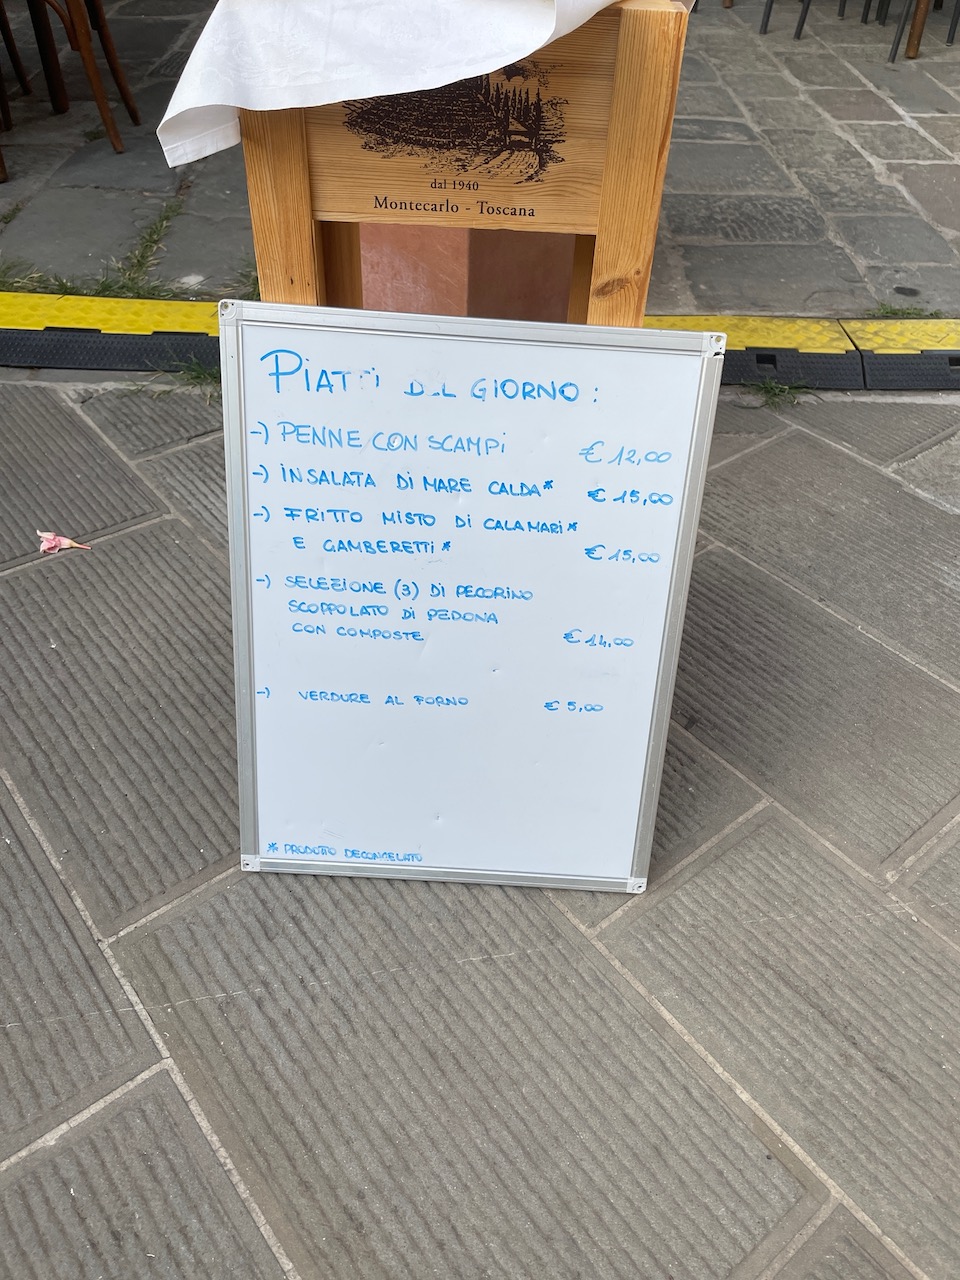 dal 1940
Montecarlo - Toscana
PIATTI DEL GIORNO:
-) PENNE CON SCAMPI € 12,00
-) INSALATA DI MARE CALDA* € 15,00
-) FRITTO MISTO DI CALAMARI*
E GAMBERETTI* € 15,00
-) SELEZIONE (3) DI PECORINO
SCOPPOLATO DI PEDONA
CON COMPOSTE € 14,00
-) VERDURE AL FORNO € 5,00
* PRODOTTO DECONGELATO